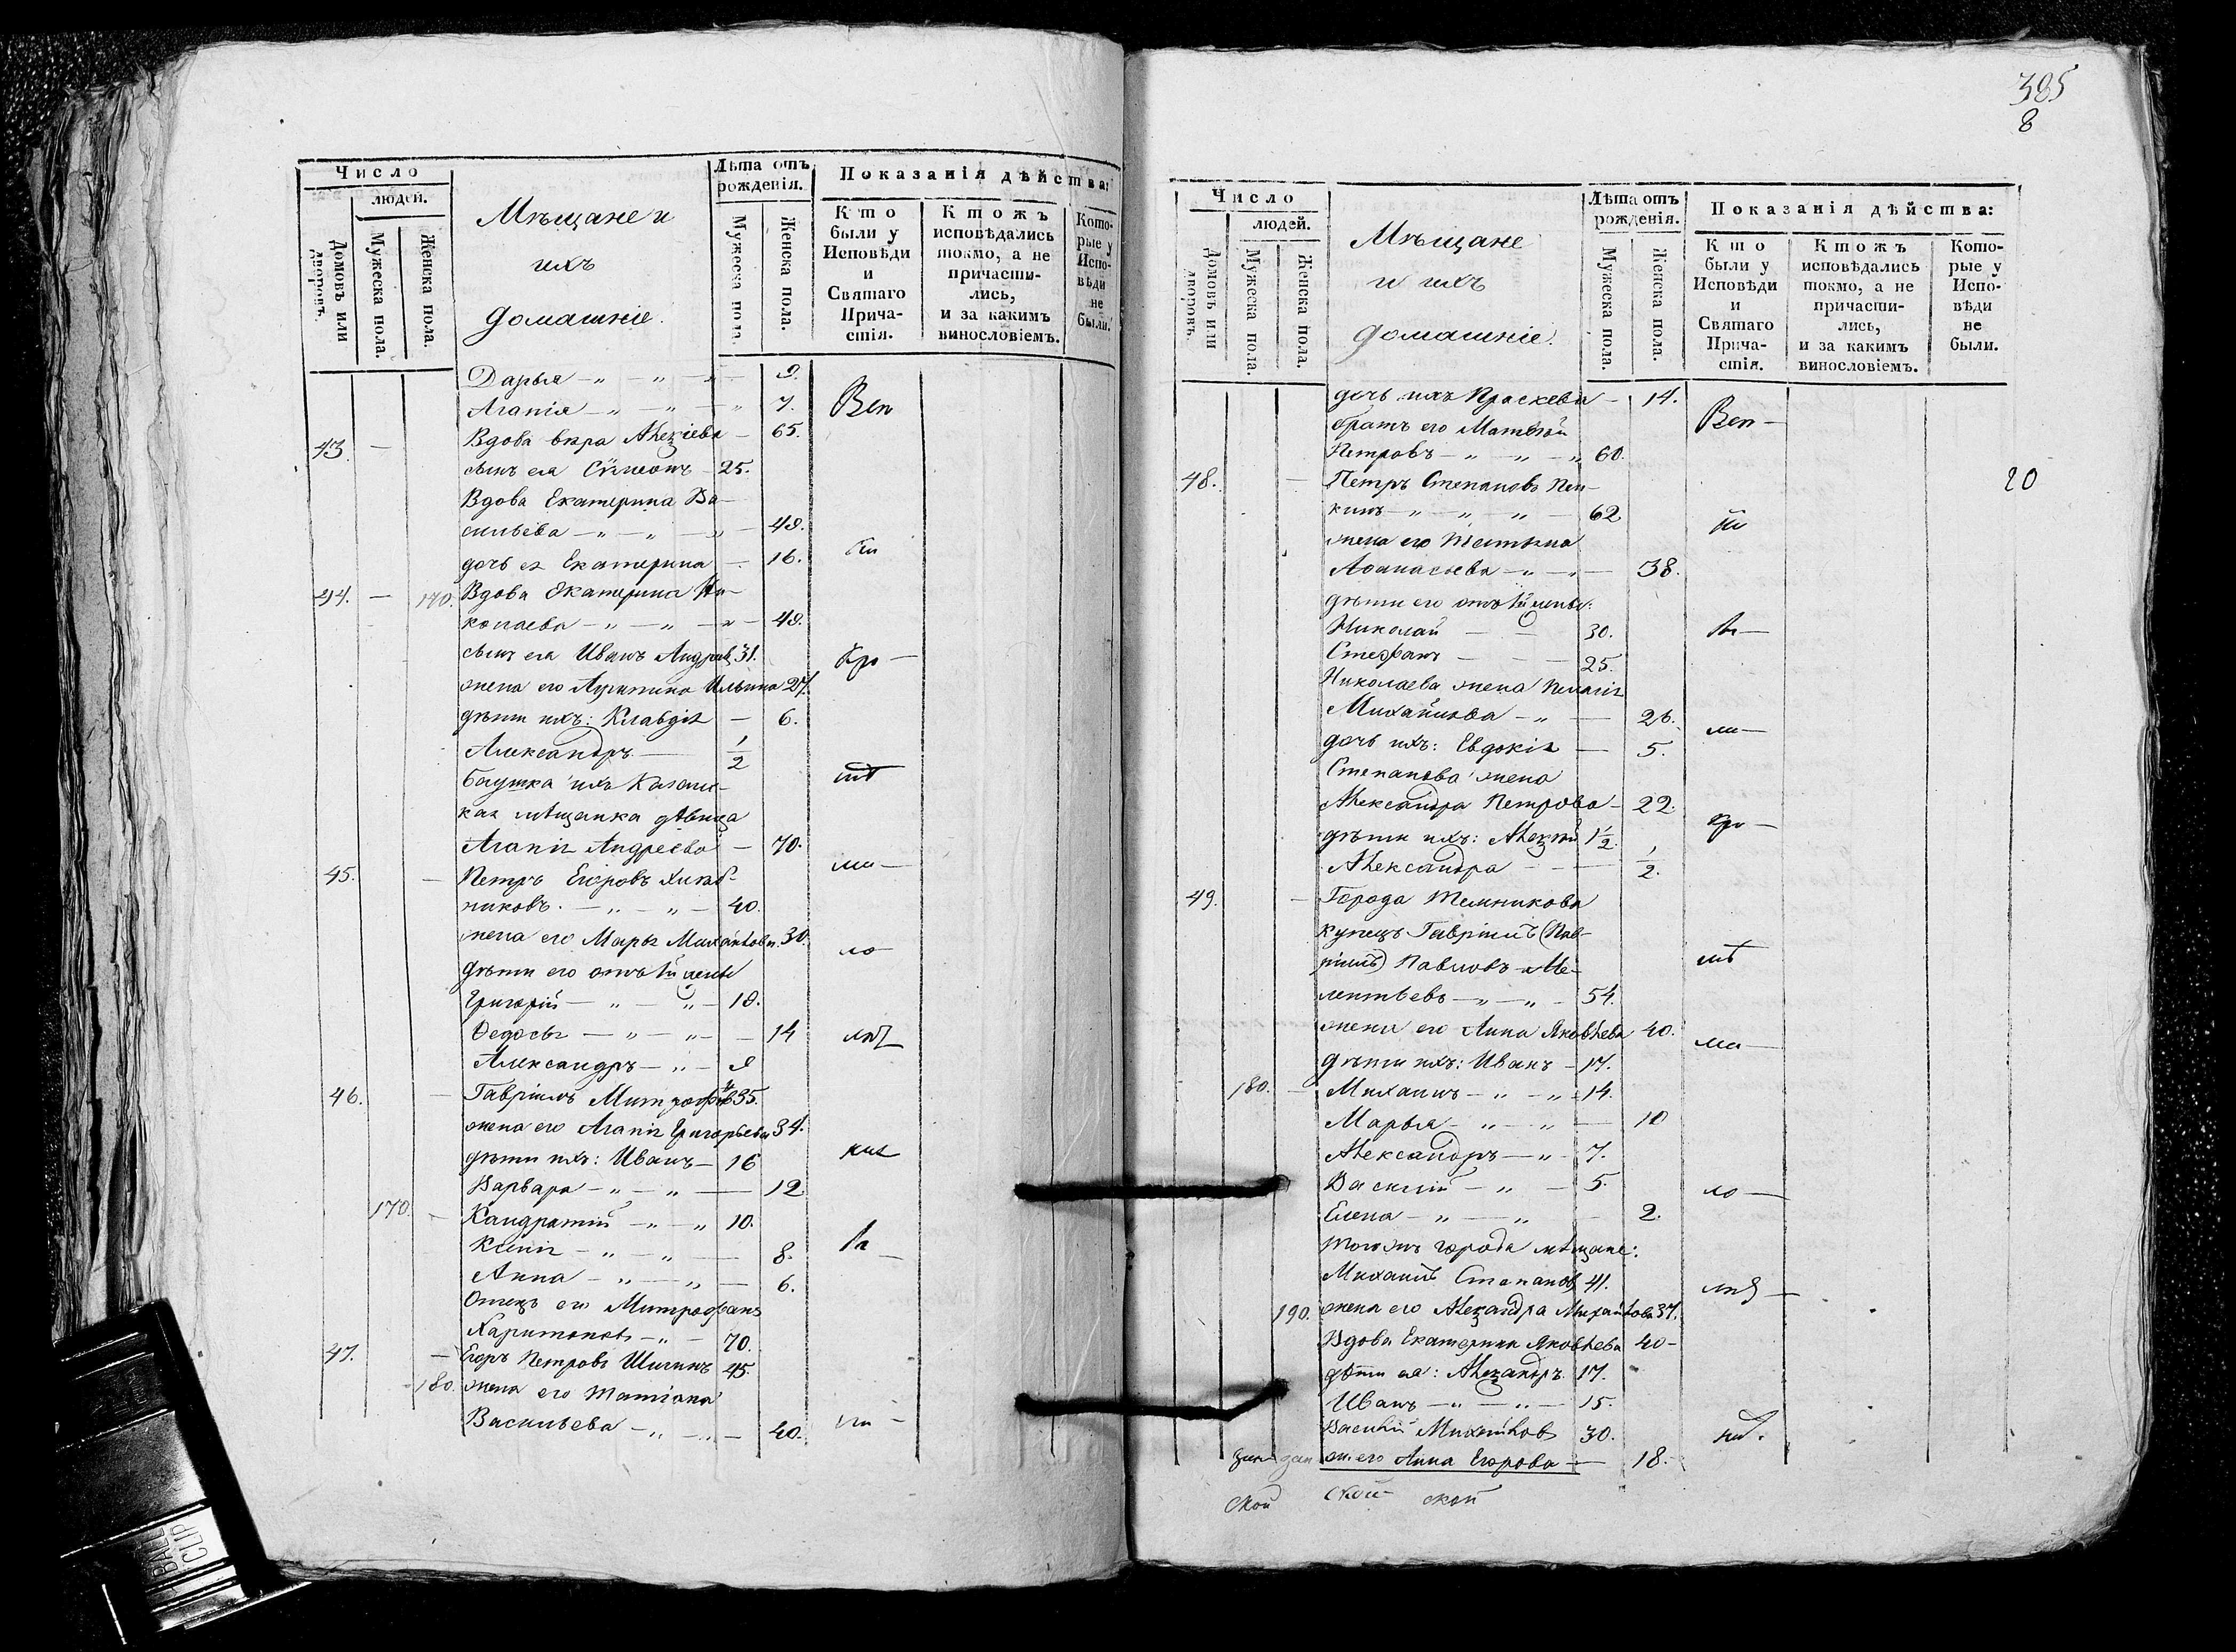 385
8
Число
людей.
Домовъ или дворовъ.
Мужеска пола.
Женска пола.
Мѣщане и
ихъ
домашніе.
Лѣта отъ рожденія.
Мужеска пола.
Женска пола.
Показанія дѣйства:
Кто были у Исповѣди и Святаго Причастія.
Ктожъ исповѣдались токмо, а не причастились, и за какимъ винословіемъ.
Которые у Исповѣди не были.
Дарья — „ — „ — 9.
Агапія — „ — „ — 7.
43. — Вдова вѣра Алеѯіева — 65.
сынъ ея Сѵмеонъ — 25.
Вдова Екатерина Ва-
сильева — „ — „ — 49.
дочь ея Екатерина — 16.
44. — 170. Вдова Екатерина Ни-
колаева — „ — „ — 49.
сынъ ея Иванъ Андреев 31.
жена его Агрипина Ильина 27.
дѣти ихъ: Клавдія — 6.
Александръ — 1/2
баушка ихъ Казанс-
кая мѣщанка дѣвица
Агапія Андреева — 70.
45. — Петръ Егоровъ
никовъ. — „ — „ — 40.
жена его Марья Михайлова 30.
дѣти его отъ 1й жены
Григорій — „ — „ — 18.
Ѳедосья — „ — „ — 14
Александръ — „ — 9
46. — Гавріилъ Митрофанов 35.
жена его Агапія Григорьева 34.
дѣти ихъ: Иванъ — 16
Варвара — „ — „ — 12
170. — Кандратій — „ — „ 10.
Ксенія — „ — „ — 8.
Анна — „ — „ — 6.
Отецъ его Митрофанъ
Харитоновъ — „ — 70.
47. — Егоръ Петровъ Шигинъ 45.
180. жена его Татіана
Васильева — „ — „ — 40.
Число
людей.
Домовъ или дворовъ.
Мужеска пола.
Женска пола.
Мѣщане
и ихъ
домашніе.
Лѣта отъ рожденія.
Мужеска пола.
Женска пола.
Показанія дѣйства:
Кто были у Исповѣди и Святаго Причастія.
Ктожъ исповѣдались токмо, а не причастились, и за какимъ винословіемъ.
Которые у Исповѣди не были.
дочь ихъ Праскева — 14.
братъ его Матвѣй
Петровъ — „ — „ — „ 60.
48. — Петръ Степановъ Пеп-
кинъ — „ — „ — „ — 62 20
жена его Татьяна
Аѳанасьева — „ — „ — 38.
дѣти его отъ 1й жены:
Николай — — 30.
Стефанъ — — — 25.
Николаева жена Пелагія
Михайлова — „ — 26.
дочь ихъ: Евдокія — 5.
Степанова жена
Александра Петрова — 22.
дѣти ихъ: Алеѯѣй 1 1/2.
Александра — — — 1/2.
49. — Города Темникова
купецъ Гавріилъ (Гав-
ріилъ) Павловъ Ме-
лентьевъ — „ — „ — 54.
жена его Анна Яковлева 40.
дѣти ихъ: Иванъ — 17.
180. — Михаилъ — „ — „ — 14.
Марья — „ — „ — 10
Александръ — „ — 7.
Василій — „ — 5.
Елена — „ — „ — 2.
тогожъ города мѣщане:
Михаилъ Степановъ 41.
190. жена его Алеѯандра Михайлова 37.
Вдова Екатерина Яковлева 40 —
дѣти ея: Алеѯандръ. 17.
Иванъ — „ — „ — 15.
Василій Михайлов 30.
ж. его Анна Егорова — 18.
ской ской ской